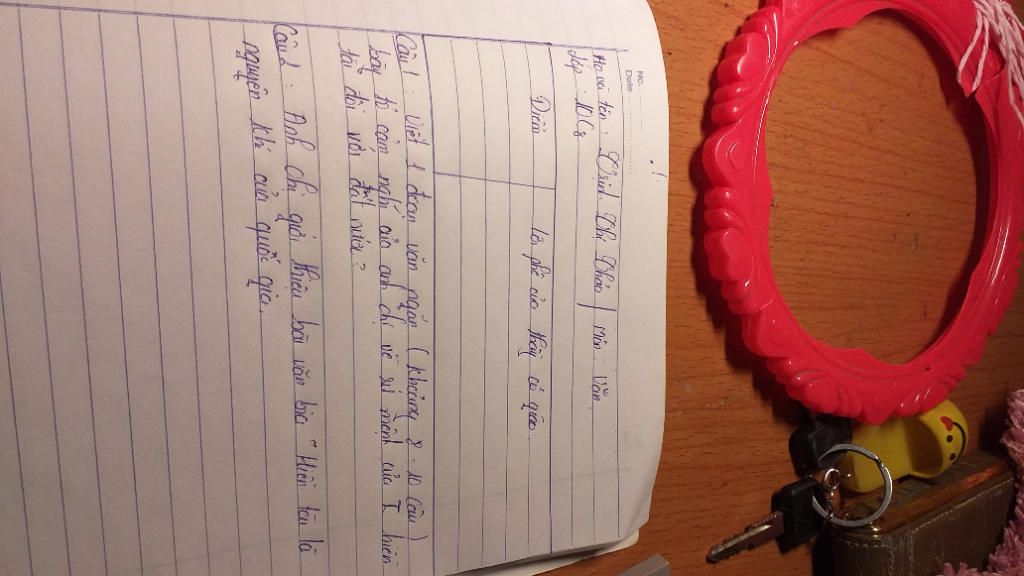 No.
Date
Họ và tên: Trịnh Thị Thảo / môn: Văn.
Lớp: 10C8
Điểm
Lời phê của thầy cô giáo.
Câu 1: Viết 1 đoạn văn ngắn (khoảng 8-10 câu)
bày tỏ cảm nghĩ của anh chị về sứ mệnh của hiền
tài đối với đất nước?
Câu 2: Anh chị giới thiệu bài văn bia "Hiền tài là
nguyên khí của quốc gia.